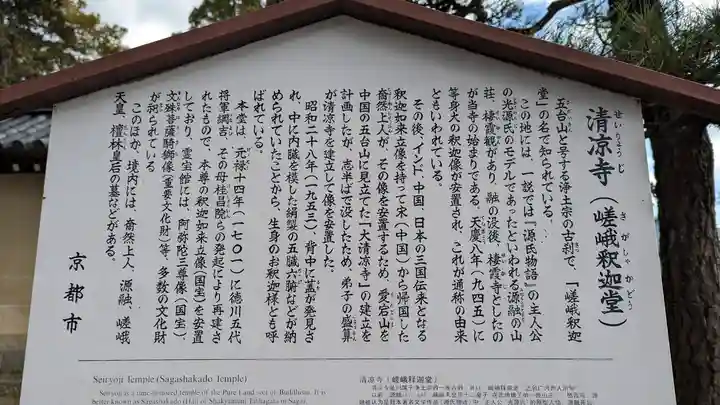 清凉寺（嵯峨釈迦堂）
せいりょうじ
さがしゃかどう
五台山と号する浄土宗の古刹で、「嵯峨釈迦
堂」の名で知られている。
この地には、一説では『源氏物語』の主人公
の光源氏のモデルであったといわれる源融の山
荘、棲霞観があり、融の没後、棲霞寺としたの
が当寺の始まりである。天慶八年（九四五）に
等身大の釈迦像が安置され、これが通称の由来
ともいわれている。
その後、インド、中国、日本の三国伝来となる
釈迦如来立像を持って宋（中国）から帰国した
奝然上人が、その像を安置するため、愛宕山を
中国の五台山に見立てた「大清凉寺」の建立を
計画したが、志半ばで没したため、弟子の盛算
が清凉寺を建立して像を安置した。
昭和二十八年（一九五三）、背中に蓋が発見さ
れ、中に内臓を模した絹製の五臓六腑などが納
められていたことから、生身のお釈迦様とも呼
ばれている。
本堂は、元禄十四年（一七〇一）に徳川五代
将軍綱吉、その母桂昌院らの発起により再建さ
れたもので、本尊の釈迦如来立像（国宝）を安置
しており、霊宝館には、阿弥陀三尊像（国宝）、
文殊菩薩騎獅像（重要文化財）等、多数の文化財
が祀られている
このほか、境内には、奝然上人、源融、嵯峨
天皇、檀林皇后の墓などがある。
京都市
Seiryoji Temple (Sagashakado Temple)
Seiryoji is a time-honored temple of the Pure Land sect of Buddhism. It is
better known as Sagashakado (Hall of Shakyamuni Tathagata in Saga)
清凉寺（嵯峨釈迦堂）